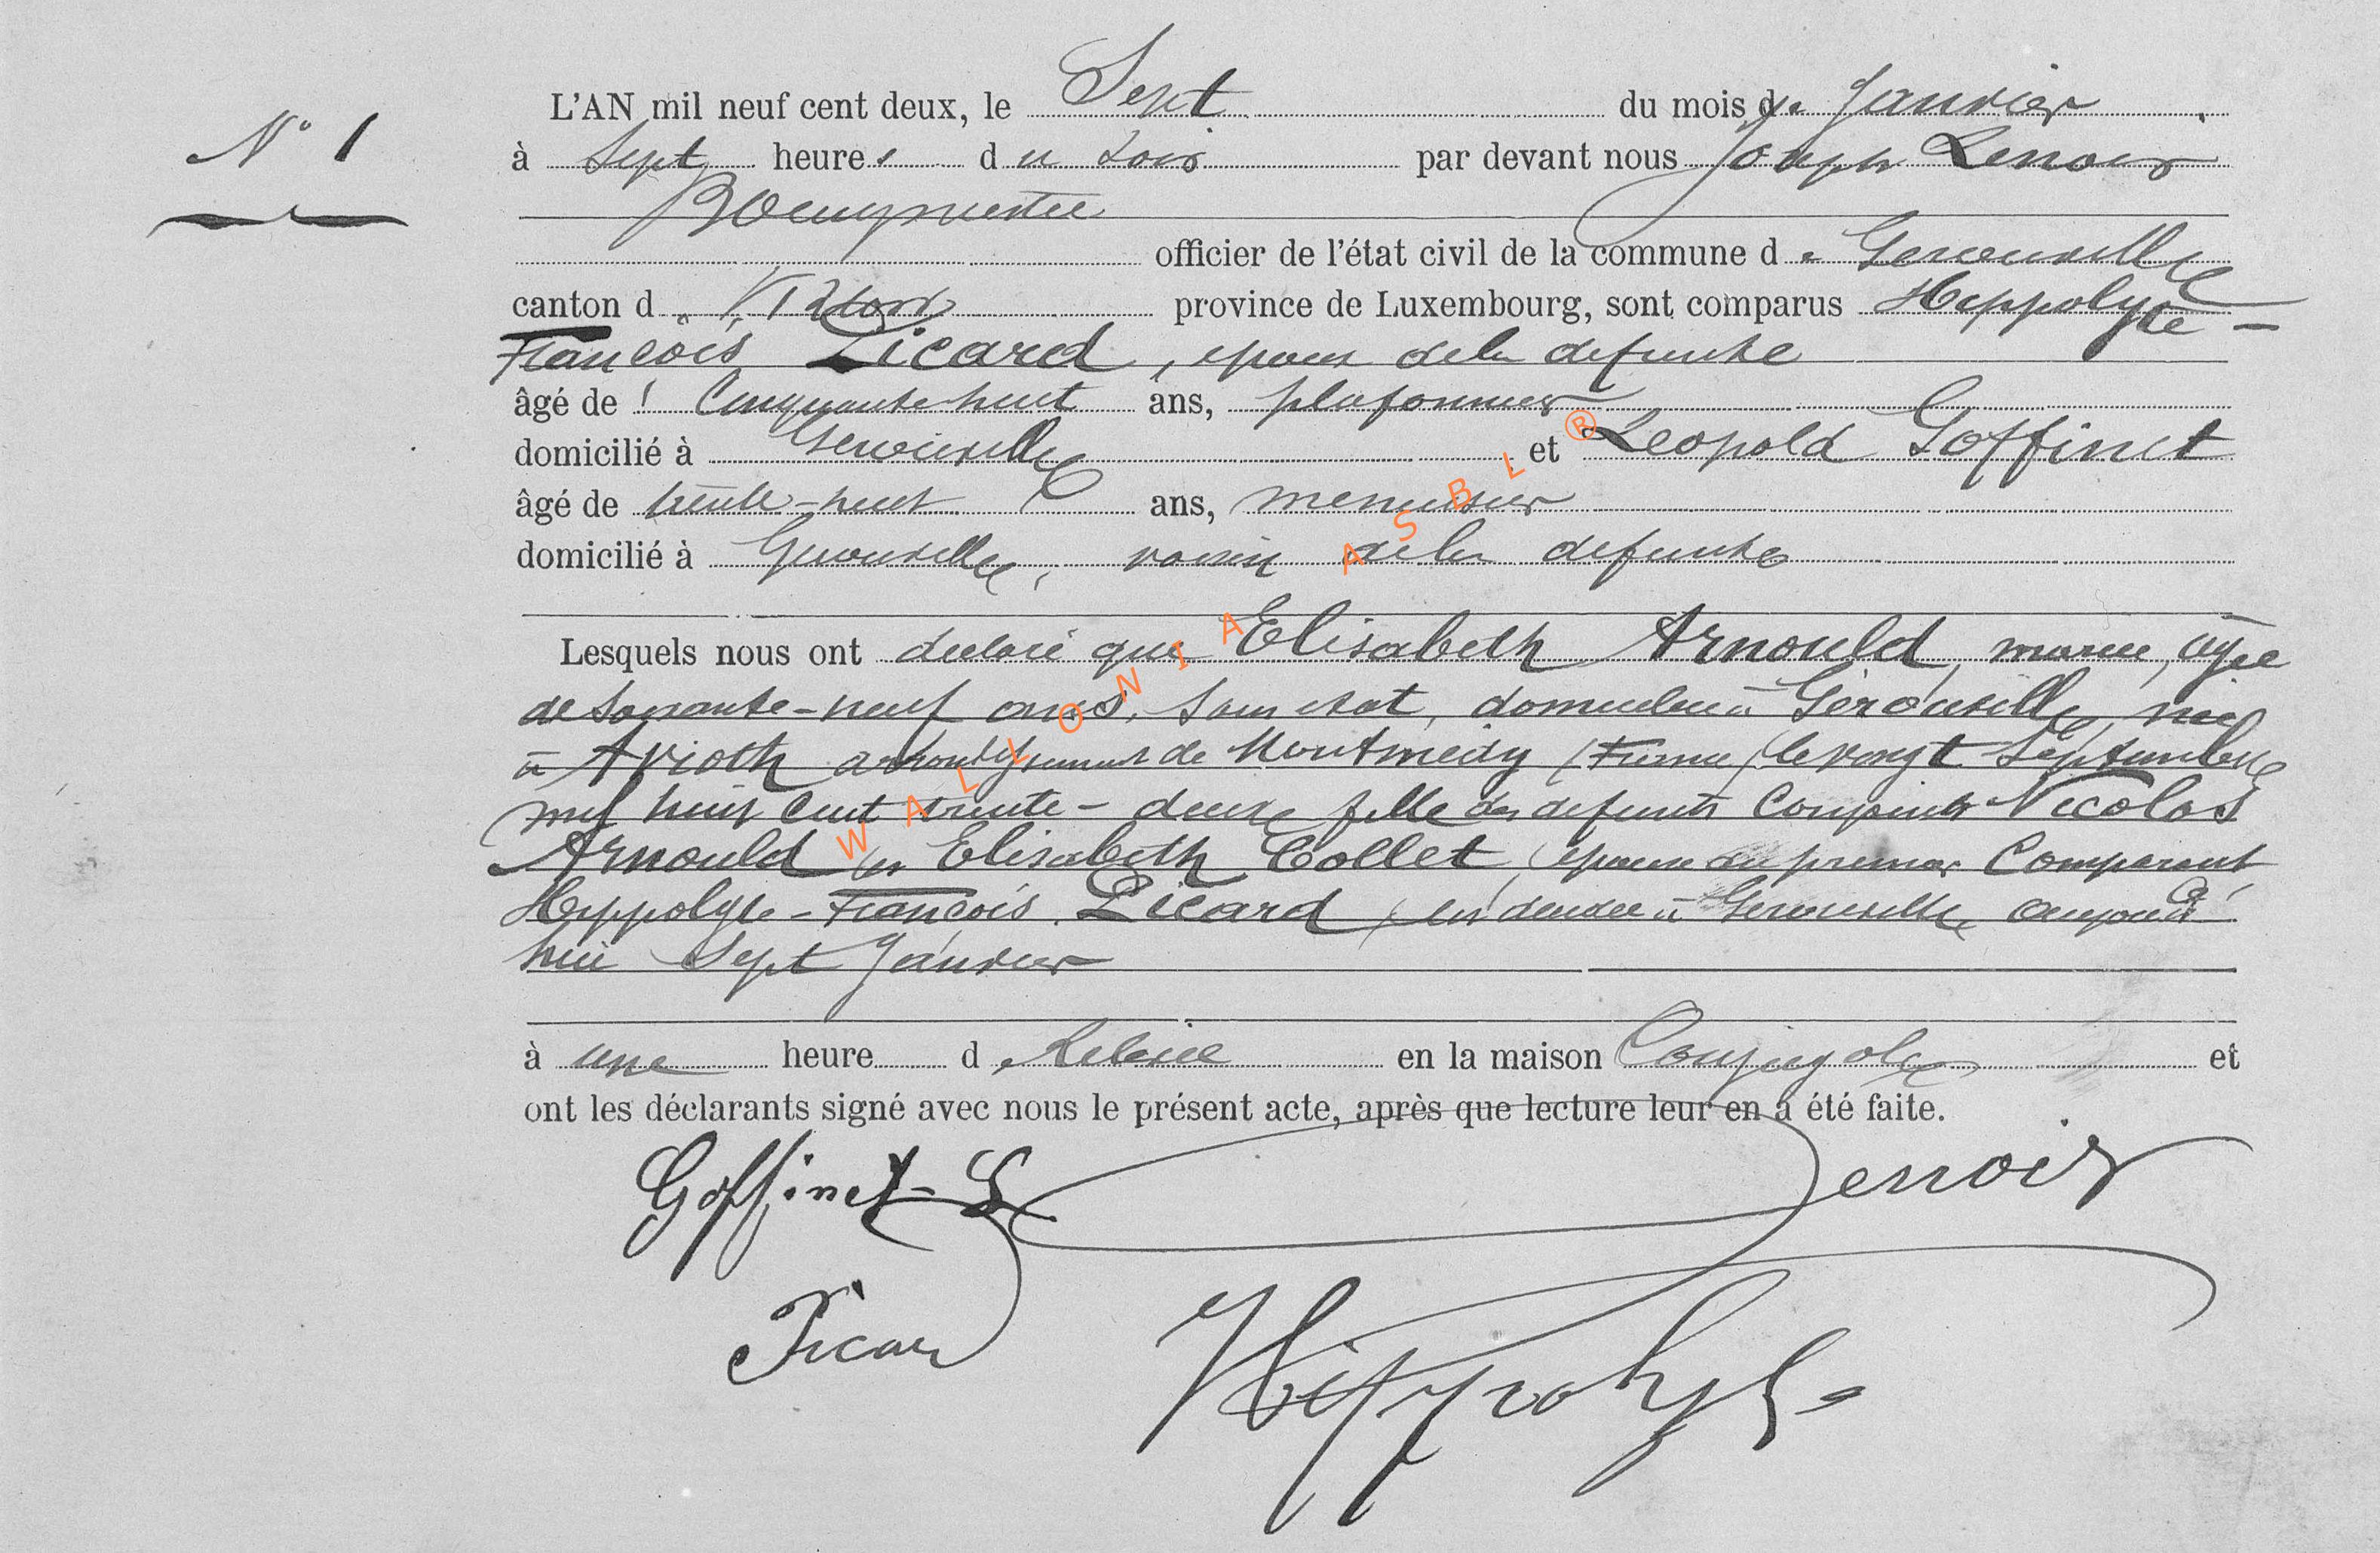 N° 1
L'AN mil neuf cent deux, le Sept du mois de Janvier
à Sept heures du soir par devant nous Joseph Lenoir
Bourgmestre
officier de l'état civil de la commune de Gérouville
canton de Virton province de Luxembourg, sont comparus Hippolyte-
François Picard, époux de la défunte
âgé de cinquante huit ans, plafonneur
domicilié à Gérouville et Leopold Goffinet
âgé de trente-huit ans, menuisier
domicilié à Gérouville, voisin de la défunte
Lesquels nous ont déclaré que Elisabeth Arnould, mariée, âgée
de soixante-neuf ans, sans état, domiciliée à Gérouville, née
à Avioth arrondissement de Montmédy (France) le vingt Septembre
mil huit cent trente-deux fille des défunts conjoints Nicolas
Arnould et Elisabeth Collet, épouse du premier Comparant
Hippolyte-François Picard, est décédée à Gérouville aujourd'
hui Sept Janvier
à une heure de relevée en la maison Conjugale et
ont les déclarants signé avec nous le présent acte, après que lecture leur en a été faite.
Goffinet-L Lenoir
Picar Hippolyte
WALLONIA ASBL ®